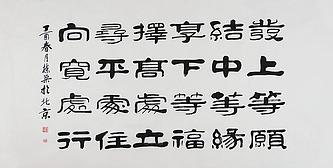 發上等願
結中等緣
享下等福
擇高處立
尋平處住
向寬處行
酉春月於北京